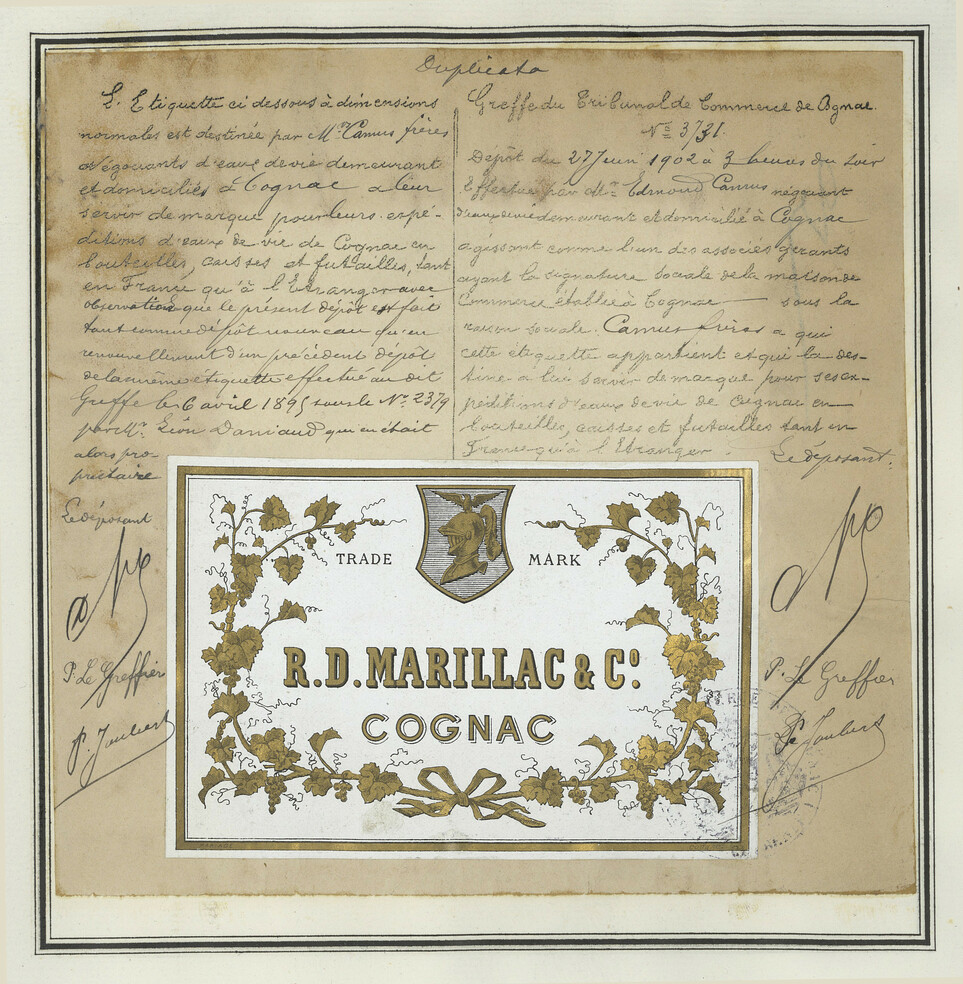 Duplicata
L'Etiquette ci dessous à dimensions
normales est destinée par Mrs Camus frères
négociants d'eaux de vie demeurant
et domiciliés à Cognac à leur
servir de marque pour leurs expé-
ditions d'eaux de vie de Cognac en
bouteilles, caisses et futailles, tant
en France qu'à l'Etranger avec
observation que le présent dépôt est fait
tant comme dépôt nouveau qu'en
renouvellement d'un précédent dépôt
de la même étiquette effectué au dit
Greffe le 6 avril 1895 sous le No. 2379
par Mr. Léon Daniaud qui en était
alors pro-
priétaire
Le déposant
P. Le Greffier
P. Joubert
Greffe du Tribunal de Commerce de Cognac.
No 3731.
Dépôt du 27 Juin 1902 à 3 heures du soir
Effectué par Mr. Edmond Camus négociant
d'eaux de vie demeurant et domicilié à Cognac
agissant comme l'un des associés gérants
ayant la signature sociale de la maison de
Commerce établie à Cognac sous la
raison sociale. Camus frères à qui
cette étiquette appartient et qui la des-
tine à lui servir de marque pour ses ex-
péditions d'eaux de vie de Cognac en
bouteilles, caisses et futailles tant en
France qu'à l'Etranger.
Le déposant.
P. Le Greffier
P. Joubert
TRADE MARK
R.D. MARILLAC & Co.
COGNAC